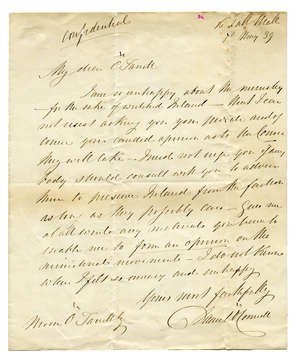 Confidential
16 Pall Mall
7th May 39
My dear O'Farrell
I am so unhappy about the ministry
for the sake of wretched Ireland - that I can
not resist asking you your private
your candid opinion as to the
they will take - I need not urge you if any
body should consult with you to advise
them to preserve Ireland from the faction
as long as they possibly can - Give me
at all events any materials you have to
enable me to form an opinion on the
ministerial movements - I do not know
when I felt so uneasy and unhappy
Yours most faithfully
Daniel O'Connell
More O'Farrell